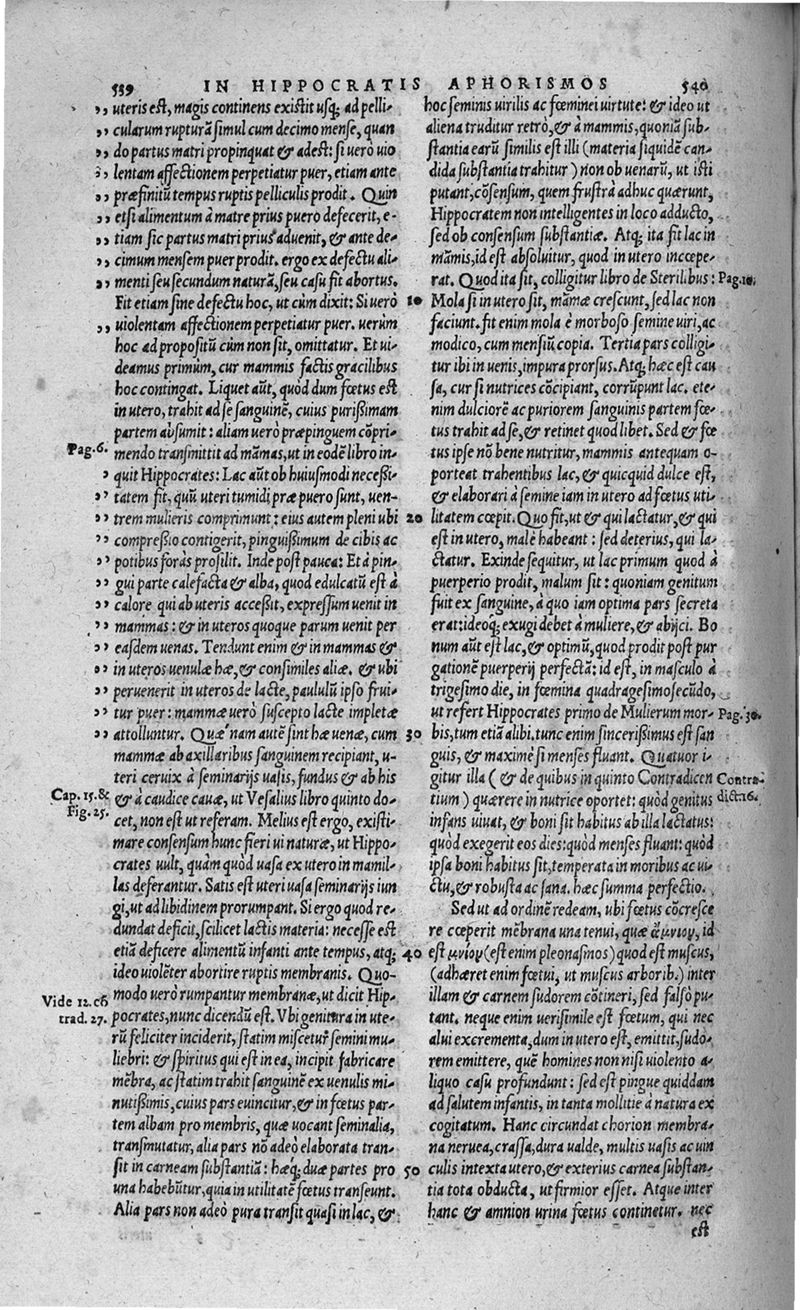 539 IN HIPPOCRATIS APHORISMOS 540
,, uteris est, magis continens existit usq; ad pelli-
,, cularum rupturã simul cum decimo mense, quan
,, do partus matri propinquat & adest: si uerò uio
,, lentam affectionem perpetiatur puer, etiam ante
,, præfinitũ tempus ruptis pelliculis prodit. Quin
,, etsi alimentum à matre prius puero defecerit, e-
,, tiam sic partus matri prius aduenit, & ante de-
,, cimum mensem puer prodit. ergo ex defectu ali-
,, menti seu secundum naturã, seu casu fit abortus.
Fit etiam sine defectu hoc, ut cùm dixit: Si uerò
,, uiolentam affectionem perpetiatur puer. uerùm
hoc ad propositũ cùm non sit, omittatur. Et ui-
deamus primùm, cur mammis factis gracilibus
hoc contingat. Liquet aũt, quòd dum fœtus est
in utero, trahit ad se sanguinẽ, cuius purißimam
partem absumit: aliam uerò præpinguem cõpri-
Pag.6. mendo transmittit ad mãmas, ut in eodẽ libro in-
, quit Hippocrates: Lac aũt ob huiusmodi neceßi-
,, tatem fit, quũ uteri tumidi præ puero sunt, uen-
,, trem mulieris comprimunt: eius autem pleni ubi
,, compreßio contigerit, pinguißimum de cibis ac
,, potibus foràs prosilit. Inde post pauca: Et à pin-
,, gui parte calefacta & alba, quod edulcatũ est à
,, calore qui ab uteris acceßit, expressum uenit in
,, mammas: & in uteros quoque parum uenit per
,, easdem uenas. Tendunt enim & in mammas &
,, in uteros uenulæ hæ, & consimiles aliæ. & ubi
,, peruenerit in uteros de lacte, paululũ ipso frui-
,, tur puer: mammæ uerò suscepto lacte impletæ
,, attolluntur. Quæ nam autẽ sint hæ uenæ, cum
mammæ ab axillaribus sanguinem recipiant, u-
teri ceruix à seminarijs uasis, fundus & ab his
Cap. 15. & & à caudice cauæ, ut Vesalius libro quinto do-
Fig. 25. cet, non est ut referam. Melius est ergo, existi-
mare consensum hunc fieri ui naturæ, ut Hippo-
crates uult, quàm quòd uasa ex utero in mamil-
las deferantur. Satis est uteri uasa seminarijs iun
gi, ut ad libidinem prorumpant. Si ergo quod re-
dundat deficit, scilicet lactis materia: necesse est
etiã deficere alimentũ infanti ante tempus, atq;
ideo uiolẽter abortire ruptis membranis. Quo-
Vide 12. cõ modo uerò rumpantur membranæ, ut dicit Hip-
trad. 27. pocrates, nunc dicendũ est. Vbi genitura in ute-
rũ feliciter inciderit, statim miscetur semini mu-
liebri: & spiritus qui est in ea, incipit fabricare
mẽbra, ac statim trahit sanguinẽ ex uenulis mi-
nutißimis, cuius pars euincitur, & in fœtus par-
tem albam pro membris, quæ uocant seminalia,
transmutatur, alia pars nõ adeò elaborata tran-
sit in carneam substantiã: hæq; duæ partes pro
una habebũtur, quia in utilitatẽ fœtus transeunt.
Alia pars non adeò pura transit quasi in lac, &
hoc seminis uirilis ac fœminei uirtute: & ideo ut
aliena truditur retrò, & à mammis, quoniã sub-
stantia earũ similis est illi (materia siquidẽ can-
dida substantia trahitur) non ob uenarũ, ut isti
putant, cõsensum, quem frustrà adhuc quærunt,
Hippocratem non intelligentes in loco adducto,
sed ob consensum substantiæ. Atq; ita fit lac in
mãmis, id est absoluitur, quod in utero incœpe-
rat. Quod ita sit, colligitur libro de Sterilibus: Pag.10.
10 Mola si in utero sit, mãmæ crescunt, sed lac non
faciunt. fit enim mola è morboso semine uiri, ac
modico, cum mensiũ copia. Tertia pars colligi-
tur ibi in uenis, impura prorsus. Atq; hæc est cau
sa, cur si nutrices cõcipiant, corrũpunt lac. ete-
nim dulciorẽ ac puriorem sanguinis partem fœ-
tus trahit ad se, & retinet quod libet. Sed & fœ
tus ipse nõ bene nutritur, mammis antequam o-
porteat trahentibus lac, & quicquid dulce est,
& elaborari à semine iam in utero ad fœtus uti-
20 litatem cœpit. Quo fit, ut & qui lactatur, & qui
est in utero, malè habeant: sed deterius, qui la-
ctatur. Exinde sequitur, ut lac primum quod à
puerperio prodit, malum sit: quoniam genitum
fuit ex sanguine, à quo iam optima pars secreta
erat: ideoq; exugi debet à muliere, & abijci. Bo
num aũt est lac, & optimũ, quod prodit post pur
gationẽ puerperij perfectã: id est, in masculo à
trigesimo die, in fœmina quadragesimosecũdo,
ut refert Hippocrates primo de Mulierum mor- Pag. 30.
30 bis, tum etiã alibi, tunc enim sincerißimus est san
guis, & maximè si menses fluant. Quatuor i-
gitur illa (& de quibus in quinto Contradicen Contra-
tium) quærere in nutrice oportet: quòd genitus dict. 16.
infans uiuat, & boni sit habitus ab illa lactatus:
quòd exegerit eos dies: quòd menses fluant: quòd
ipsa boni habitus sit, temperata in moribus ac ui-
ctu, & robusta ac sana. hæc summa perfectio.
Sed ut ad ordinẽ redeam, ubi fœtus cõcresce
re cœperit mẽbrana una tenui, quæ ἄμνιον, id
40 est μνίον (est enim pleonasmos) quod est muscus,
(adhæret enim fœtui, ut muscus arborib.) inter
illam & carnem sudorem cõtineri, sed falsò pu-
tant. neque enim uerisimile est fœtum, qui nec
alui excrementa, dum in utero est, emittit, sudo-
rem emittere, quẽ homines non nisi uiolento a-
liquo casu profundunt: sed est pingue quiddam
ad salutem infantis, in tanta mollitie à natura ex
cogitatum. Hanc circundat chorion membra-
na neruea, crassa, dura ualde, multis uasis ac uin
50 culis intexta utero, & exterius carnea substan-
tia tota obducta, ut firmior esset. Atque inter
hanc & amnion urina fœtus continetur. nec
est